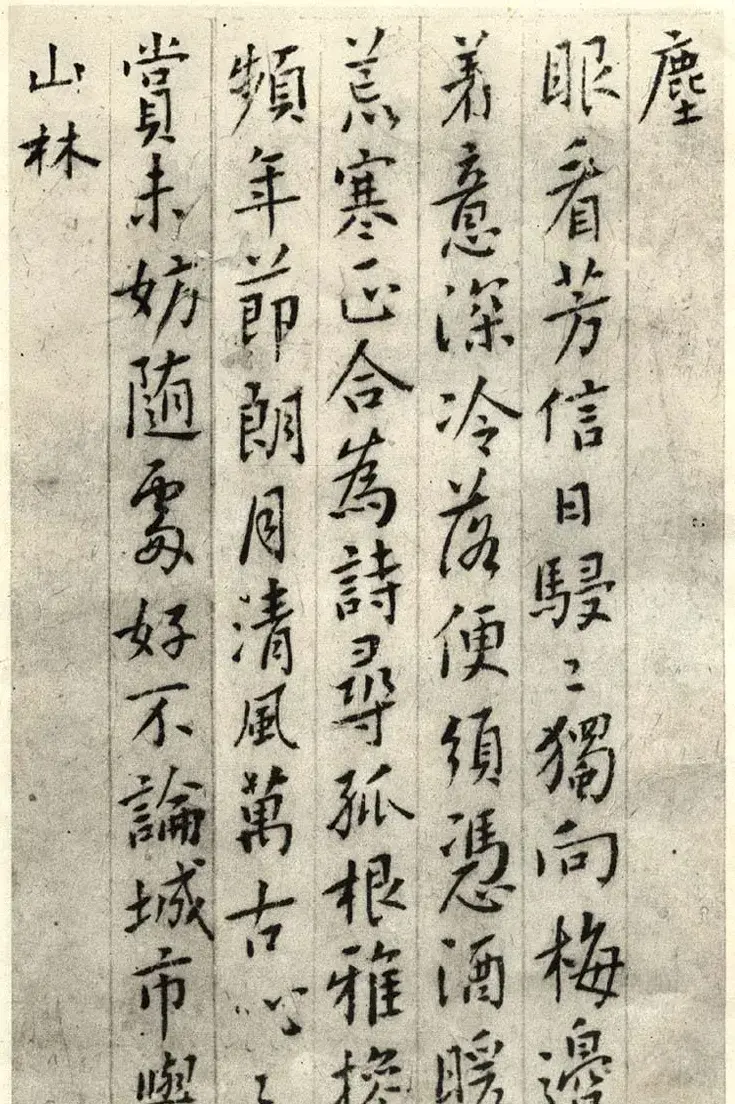 塵
眼看芳信日駸〻獨向梅邊
着意深冷落便須憑酒暖
荒寒正合為詩尋孤根雅操
頻年節朗月清風萬古心〻
賞未妨隨處好不論城市與
山林